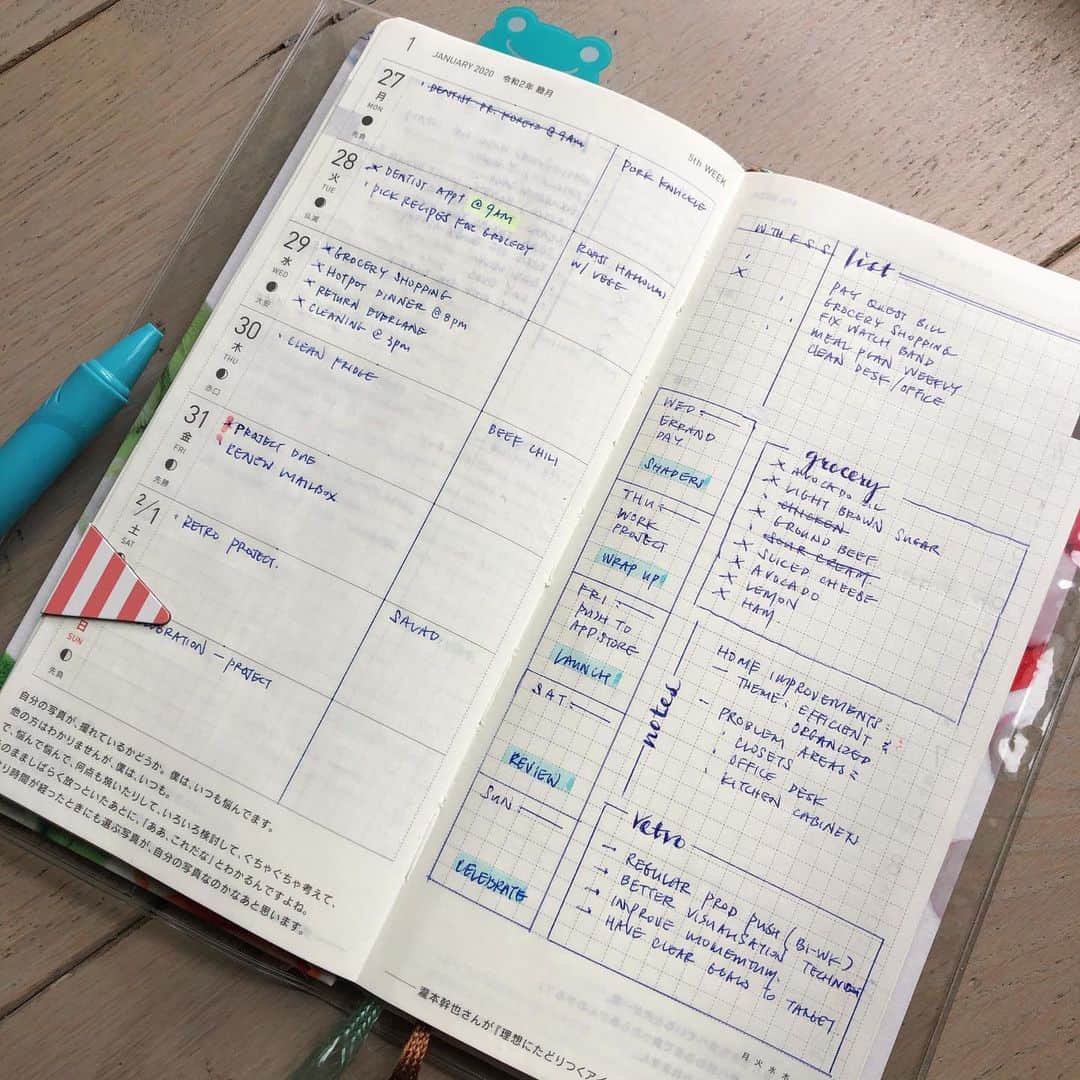 1
JANUARY 2020 令和2年 睦月
5th WEEK
27
月
MON
先負
DENTIST DR. @ 9AM
PORK KNUCKLE
28
火
TUE
仏滅
× DENTIST APPT @ 9AM
' PICK RECIPES FOR GROCERY
ROAST
W/ VEGE
29
水
WED
大安
× GROCERY SHOPPING
× HOTPOT DINNER @ 8PM
× RETURN OVERLANE
× CLEANING @ 3PM
30
木
THU
赤口
' CLEAN FRIDGE
BEEF CHILI
31
金
FRI
先勝
× PROJECT DUE
' RENEW MAILBOX
2/1
土
SAT
' RETRO PROJECT.
SALAD
日
SUN
先負
BRATION — PROJECT
自分の写真が、撮れているかどうか。僕は、いつも悩んでます。
他の方はわかりませんが、僕は、いつも。
で、悩んで悩んで、何点も焼いたりして、いろいろ検討して、ぐちゃぐちゃ考えて、
のまましばらく放っといたあとに、「ああ、これだな」とわかるんですよね。
り時間が経ったときにも選ぶ写真が、自分の写真なのかなあと思います。
W TH F S S
list
PAY QUEST BILL
GROCERY SHOPPING
FIX WATCH BAND
MEAL PLAN WEEKLY
CLEAN DESK/OFFICE
WED:
ERRAND
DAY
SHAPERS
THU:
WORK
PROJECT
WRAP UP
FRI:
PUSH TO
APP STORE
LAUNCH
SAT:
REVIEW
SUN:
CELEBRATE
grocery
× AVOCADO OIL
× LIGHT BROWN SUGAR
' CHICKEN
× GROUND BEEF
' SOUR CREAM
× SLICED CHEESE
× AVOCADO
× LEMON
× HAM
notes
HOME IMPROVEMENTS:
— THEME: EFFICIENT &
ORGANIZED
— PROBLEM AREAS:
' CLOSETS
' OFFICE DESK
' KITCHEN CABINETS
retro
→ REGULAR PROD PUSH (BI-WK)
→ BETTER VISUALISATION
→ IMPROVE MOMENTUM.
→ HAVE CLEAR GOALS TO TARGET
瀧本幹也さんが『理想にたどりつく
月 火 水 木